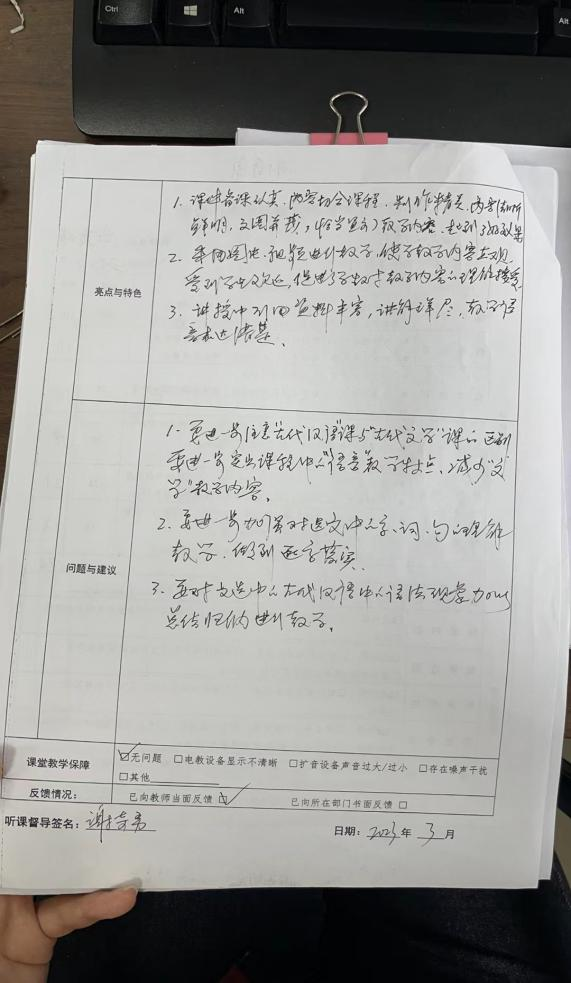 Ctrl
Alt
Alt
亮点与特色
1. 课件备课认真、内容切合课程、制作精美、内容
鲜明、文图并茂,恰当 教学内容、起到了 效果
2. 采用图片、视频进行教学、使于教学内容直观、
受到学生欢迎,促进了学生对教学内容的理解接受
3. 讲授中引用资料丰富,讲解详尽、教学语
言表达清楚。
问题与建议
1. 要进一步注意"古代汉语"课与"古代文学"课的区别
要进一步突出课程中的"语言"教学特点、减少"文
学"教学内容。
2. 要进一步加强对选文中的字、词、句的理解
教学、做到逐字落实
3. 要对文选中的古代汉语中的语法现象加以
总结归纳进行教学。
课堂教学保障
☑无问题 □电教设备显示不清晰 □扩音设备声音过大/过小 □存在噪声干扰
□其他
反馈情况: 已向教师当面反馈 ☑ 已向所在部门书面反馈 □
听课督导签名:谢 日期:2023年 3 月